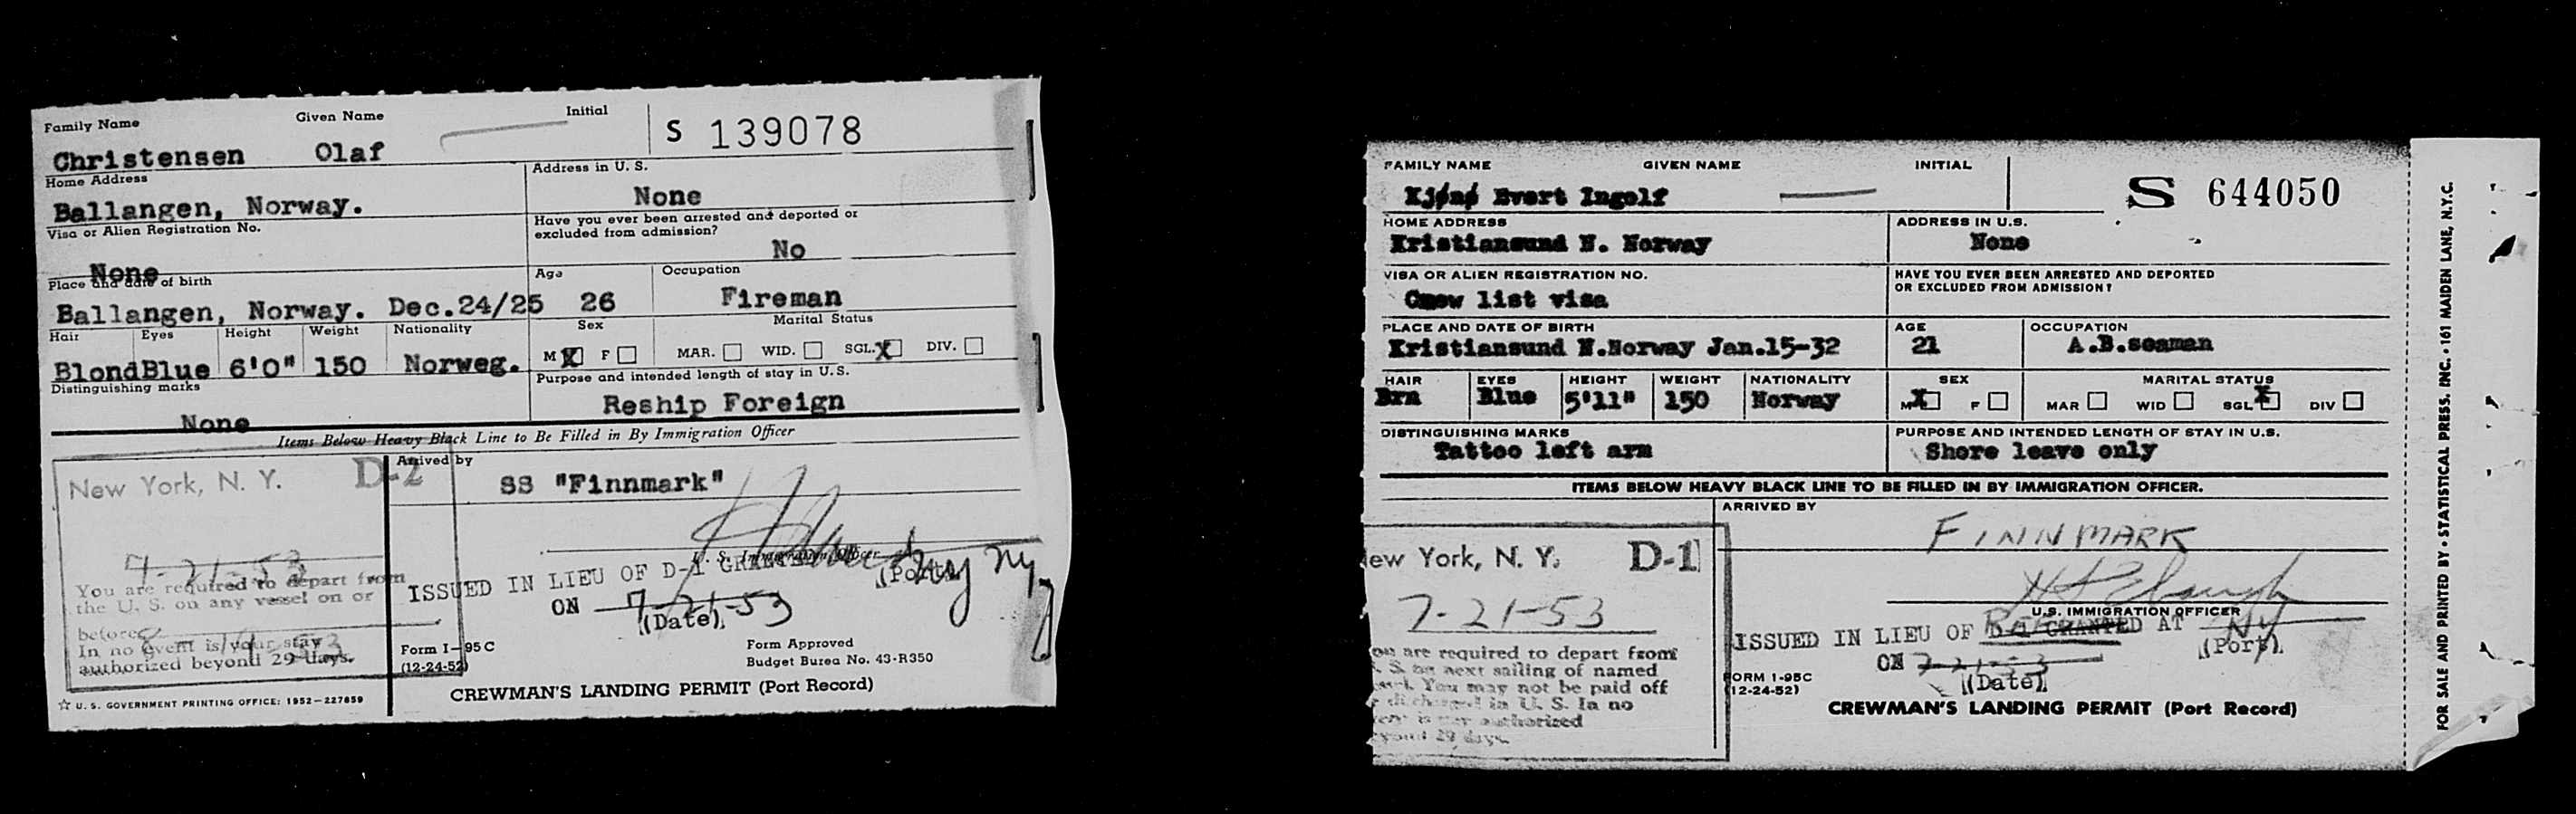 Family Name Given Name Initial
S 139078
Christensen Olaf
Home Address
Address in U. S.
Ballangen, Norway.
None
Visa or Alien Registration No.
Have you ever been arrested and deported or
excluded from admission?
None
No
Place and date of birth
Age
Occupation
Ballangen, Norway. Dec.24/25
26
Fireman
Hair Eyes Height Weight Nationality
Sex
Marital Status
Blond Blue 6'0" 150 Norweg.
M X F MAR. WID. SGL. X DIV.
Distinguishing marks
Purpose and intended length of stay in U.S.
None
Reship Foreign
Items Below Heavy Black Line to Be Filled in By Immigration Officer
New York, N. Y. D-2
Arrived by
SS "Finnmark"
7-21-53
You are required to depart from
the U. S. on any vessel on or
before
In no event is your stay
authorized beyond 29 days.
U. S. Immigration Officer
ISSUED IN LIEU OF D-1 GRANTED
NY
(Port)
ON 7-21-53
(Date)
Form I-95C
(12-24-52)
Form Approved
Budget Burea No. 43-R350
☆ U. S. GOVERNMENT PRINTING OFFICE: 1952—227859
CREWMAN'S LANDING PERMIT (Port Record)
FAMILY NAME GIVEN NAME INITIAL
S 644050
Kjønø Evert Ingolf
HOME ADDRESS
ADDRESS IN U.S.
Kristiansund N. Norway
None
VISA OR ALIEN REGISTRATION NO.
HAVE YOU EVER BEEN ARRESTED AND DEPORTED
OR EXCLUDED FROM ADMISSION?
Crew list visa
PLACE AND DATE OF BIRTH
AGE
OCCUPATION
Kristiansund N.Norway Jan.15-32
21
A.B.seaman
HAIR EYES HEIGHT WEIGHT NATIONALITY
SEX
MARITAL STATUS
Brn Blue 5'11" 150 Norway
M X F MAR WID SGL X DIV
DISTINGUISHING MARKS
PURPOSE AND INTENDED LENGTH OF STAY IN U.S.
Tattoo left arm
Shore leave only
ITEMS BELOW HEAVY BLACK LINE TO BE FILLED IN BY IMMIGRATION OFFICER.
ARRIVED BY
FINNMARK
ew York, N. Y. D-1
7-21-53
ou are required to depart from
S. on next sailing of named
You may not be paid off
discharged in U. S. In no
authorized
29 days
U.S. IMMIGRATION OFFICER
ISSUED IN LIEU OF D-1 GRANTED AT NY
(Port)
ON 7-21-53
(Date)
FORM I-95C
(12-24-52)
CREWMAN'S LANDING PERMIT (Port Record)
FOR SALE AND PRINTED BY • STATISTICAL PRESS, INC. • 161 MAIDEN LANE, N.Y.C.